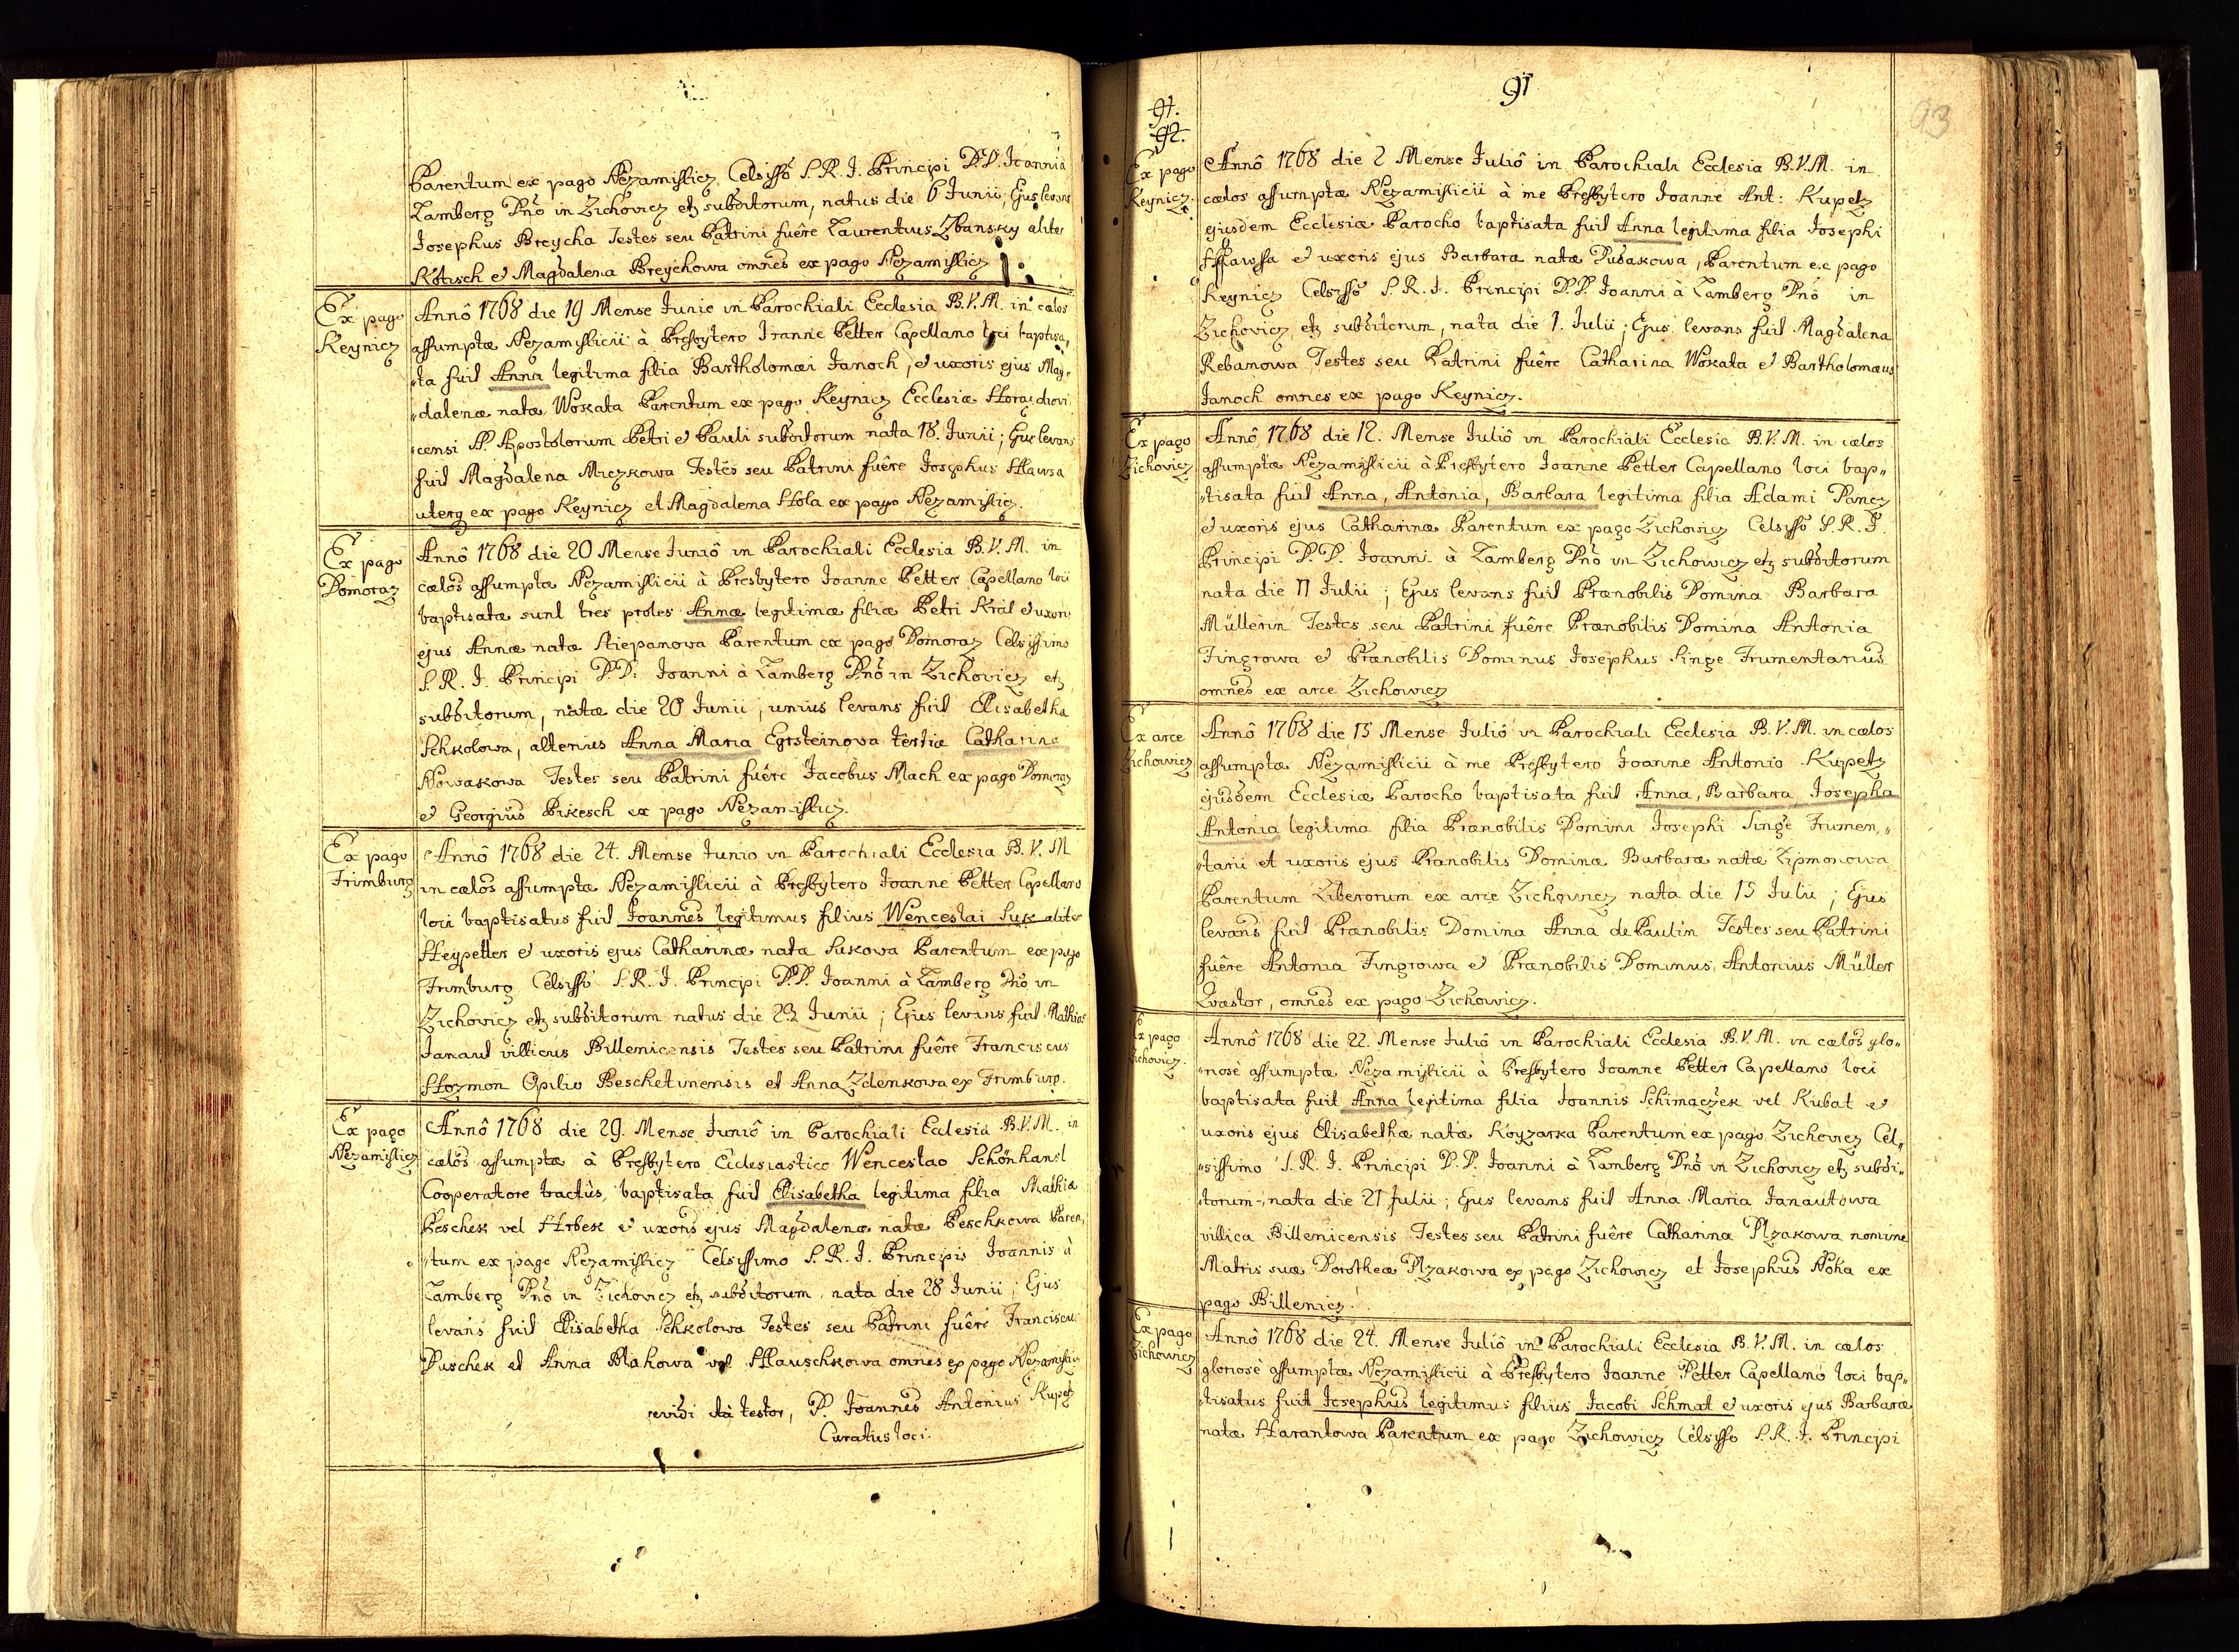 Parentum ex pago Nezamislicz Celsisso S. R. J. Principi D.D. Joanni à
Lamberg Dno in Zichovicz etz subditorum, natus die 6 Junii, Ejus levans
Josephus Breycha Testes seu Patrini fuêre Laurentius Zbansky aliter
Kotisch et Magdalena Breychowa omnes ex pago Nezamislicz
Ex pago
Keynicz
Annô 1768 die 19 Mense Junio in Parochiali Ecclesia B.V.M. in cælos
assumptæ Nezamislicii à Presbytero Joanne Petter Capellano loci baptisa„
„ta fuit Anna legitima filia Bartholomæi Janoch, et uxoris ejus Mag„
„dalenæ natæ Wokata Parentum ex pago Keynicz Ecclesiæ Horazdiovi
censi SS. Apostolorum Petri et Pauli subditorum nata 18. Junii; Ejus levans
fuit Magdalena Miczkowa Testes seu Patrini fuêre Josephus Hawsa
uterq ex pago Keynicz et Magdalena Hola ex pago Nezamislicz.
Ex pago
Domoraz
Annô 1768 die 20 Mense Juniô in Parochiali Ecclesia B.V.M. in
cælos assumptæ Nezamislicii à Presbytero Joanne Petter Capellano loci
baptisatæ sunt tres proles Annæ legitimæ filiæ Petri Kral et uxoris
ejus Annæ natæ Stiepanowa Parentum ex pago Domoraz Celsissimo
S. R. J. Principi D.D. Joanni à Lamberg Dno in Zichovicz etz
subditorum, natæ die 20 Junii, unius levans fuit Elisabetha
Schkolowa, alterius Anna Maria Egrsteinowa tertiæ Catharina
Nowakowa Testes seu Patrini fuêre Jacobus Mach ex pago Domoraz
et Georgius Bikesch ex pago Nezamislicz.
Ex pago
Frimburg
Annô 1768 die 24. Mense Junio in Parochiali Ecclesia B.V.M
in cælos assumptæ Nezamislicii à Presbytero Joanne Petter Capellano
loci baptisatus fuit Joannes legitimus filius Wenceslai Suk aliter
Heypetter et uxoris ejus Catharinæ nata Sukowa Parentum ex pago
Frimburg Celsisso S. R. J. Principi D.D. Joanni à Lamberg Dno in
Zichovicz etz subditorum natus die 23 Junii; Ejus levans fuit Mathias
Janaut villicus Billenicensis Testes seu Patrini fuêre Franciscus
Hozmon Opilio Beschetinensis et Anna Zdenkowa ex Frimburg.
Ex pago
Nezamislicz
Annô 1768 die 29. Mense Juniô in Parochiali Ecclesia B.V.M. in
cælos assumptæ à Presbytero Ecclesiastico Wenceslao Schönhansl
Cooperatore tractûs, baptisata fuit Elisabetha legitima filia Mathiæ
Peschek vel Hrbek et uxoris ejus Magdalenæ natæ Peschkowa Paren„
„tum ex pago Nezamislicz Celsissimo S. R. J. Principis Joannis à
Lamberg Dno in Zichovicz etz subditorum nata die 28 Junii; Ejus
levans fuit Elisabetha Schkolowa Testes seu Patrini fuêre Franciscus
Duschek et Anna Blahowa vel Hauschkowa omnes ex pago Nezamislicz
revidi ità testor, P. Joannes Antonius Kupetz
Curatus loci.
91
93
91.
92.
Ex pago
Keynicz.
Annô 1768 die 2 Mense Juliô in Parochiali Ecclesia B.V.M. in
cælos assumptæ Nezamislicii à me Presbytero Joanne Ant: Kupetz
ejusdem Ecclesiæ Parocho baptisata fuit Anna legitima filia Josephi
Hawsa et uxoris ejus Barbaræ natæ Dusakowa, Parentum ex pago
Keynicz Celsisso S. R. J. Principi D.D. Joanni à Lamberg Dno in
Zichovicz etz subditorum, nata die 1. Julii; Ejus levans fuit Magdalena
Rebanowa Testes seu Patrini fuêre Catharina Wokata et Bartholomæus
Janoch omnes ex pago Keynicz.
Ex pago
Zichovicz
Annô 1768 die 12. Mense Juliô in Parochiali Ecclesia B.V.M. in cælos
assumptæ Nezamislicii à Presbytero Joanne Petter Capellano loci bap„
„tisata fuit Anna, Antonia, Barbara legitima filia Adami Pancz
et uxoris ejus Catharinæ Parentum ex pago Zichovicz Celsisso S. R. J.
Principi D.D. Joanni à Lamberg Dno in Zichowicz etz subditorum
nata die 11 Julii; Ejus levans fuit Prænobilis Domina Barbara
Müllerin Testes seu Patrini fuêre Prænobilis Domina Antonia
Fingrowa et Prænobilis Dominus Josephus Singe Frumentarius
omnes ex arce Zichowicz
Ex arce
Zichowicz
Annô 1768 die 15 Mense Juliô in Parochiali Ecclesia B.V.M. in cælos
assumptæ Nezamislicii à me Presbytero Joanne Antonio Kupetz
ejusdem Ecclesiæ Parocho baptisata fuit Anna, Barbara, Josepha
Antonia legitima filia Prænobilis Domini Josephi Singe Frumen„
„tarii et uxoris ejus Prænobilis Dominæ Barbaræ natæ Lipmonowa
Parentum Liberorum ex arce Zichovicz nata die 15 Julii; Ejus
levans fuit Prænobilis Domina Anna de Paulin Testes seu Patrini
fuêre Antonia Fingrowa et Prænobilis Dominus, Antonius Müller
Quæstor, omnes ex pago Zichowicz.
Ex pago
Zichowicz.
Annô 1768 die 22. Mense Juliô in Parochiali Ecclesia B.V.M. in cælos glo„
„riosè assumptæ Nezamislicii à Presbytero Joanne Petter Capellano loci
baptisata fuit Anna legitima filia Joannis Schimaczek vel Kubat et
uxoris ejus Elisabethæ natæ Koyzarka Parentum ex pago Zichovicz Cel„
„sissimo S. R. J. Principi D.D. Joanni à Lamberg Dno in Zichovicz etz subdi„
„torum, nata die 21 Julii; Ejus levans fuit Anna Maria Janautowa
villica Billenicensis Testes seu Patrini fuêre Catharina Plzakowa nomine
Matris suæ Dorotheæ Plzakowa ex pago Zichowicz et Josephus Noha ex
pago Billenicz.
Ex pago
Zichowicz
Annô 1768 die 24. Mense Juliô in Parochiali Ecclesia B.V.M. in cælos
gloriosè assumptæ Nezamislicii à Presbytero Joanne Petter Capellano loci bap„
„tisatus fuit Josephus legitimus filius Jacobi Schmat et uxoris ejus Barbaræ
natæ Harantowa Parentum ex pago Zichowicz Celsisso S. R. J. Principi